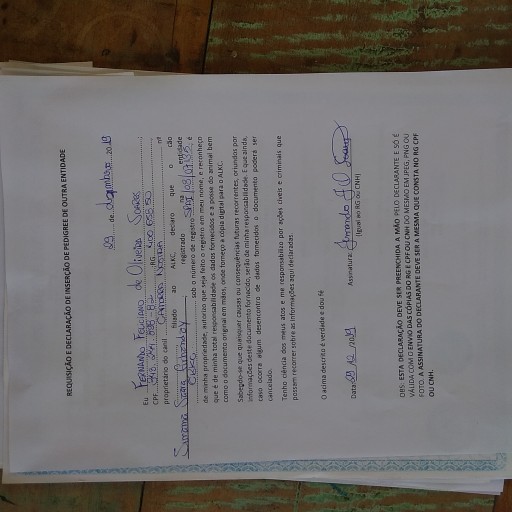 REQUISIÇÃO E DECLARAÇÃO DE INSERÇÃO DE PEDIGREE DE OUTRA ENTIDADE
29 de dezembro 2019
Eu FERNANDO FELICIANO de Oliveira Soares
CPF RG
proprietário do canil nº
filiado ao ALKC, declaro que o cão
registrado na entidade
sob o número de registro é
de minha propriedade, autorizo que seja feito o registro em meu nome, e reconheço
que é de minha total responsabilidade os dados fornecidos e a posse do animal bem
como o documento original em mãos, onde forneço a cópia digital para o ALKC.
Sabegdo-se que quaisquer causas ou consequências futuras recorrentes, oriundos por
informações deste documento fornecido, serão de minha responsabilidade. E que ainda,
caso ocorra algum desencontro de dados fornecidos o documento poderá ser
cancelado.
Tenho ciência dos meus atos e me responsabilizo por ações cíveis e criminais, que
possam recorrer sobre as informações aqui declaradas.
O acima descrito é verdade e dou fé
Data 29 12 2019 Assinatura:
(Igual ao RG ou CNH)
OBS: ESTA DECLARAÇÃO DEVE SER PREENCHIDA A MÃO PELO DECLARANTE E SÓ É
VÁLIDA COM O ENVIO DAS CÓPIAS DO RG E CPF OU CNH DO MESMO EM JPEG, PNG OU
FOTO. A ASSINATURA DO DECLARANTE DEVE SER A MESMA QUE CONSTA NO RG CPF
OU CNH.